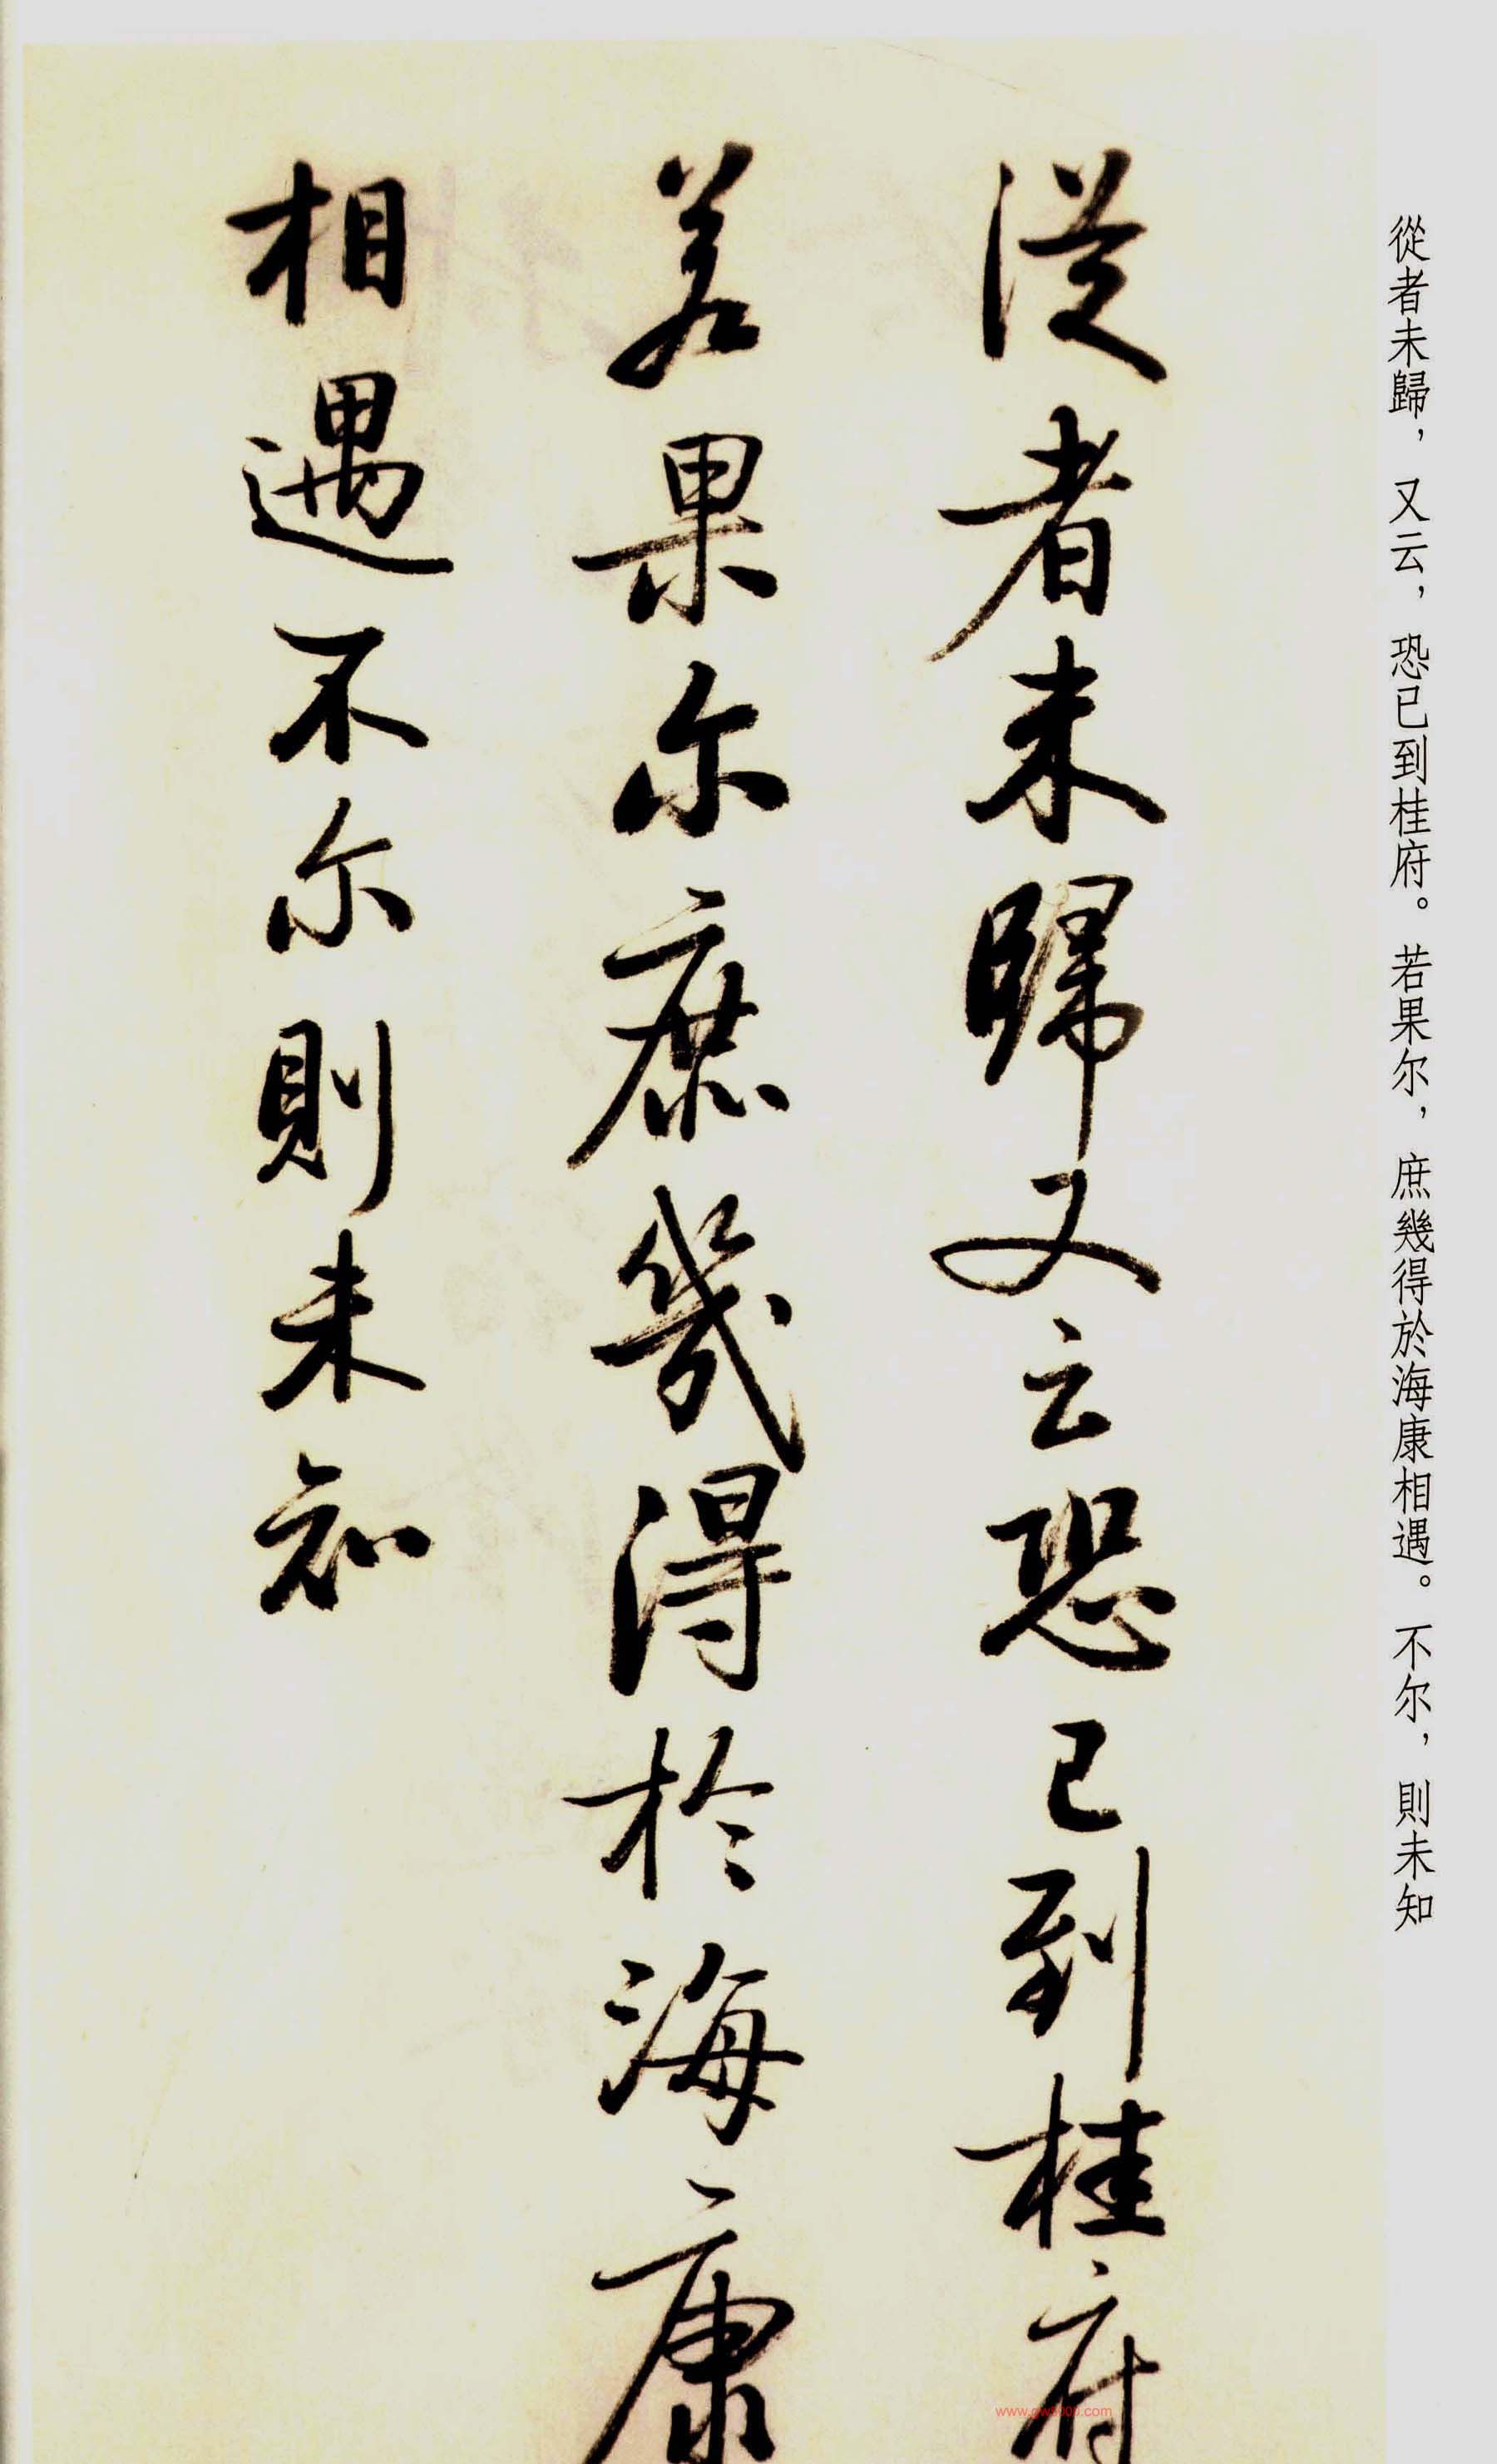 從者未歸，又云，恐已到桂府。若果尔，庶幾得於海康相遇。不尔，則未知
從者未歸又云恐已到桂府
若果尔庶幾得於海康
相遇不尔則未知